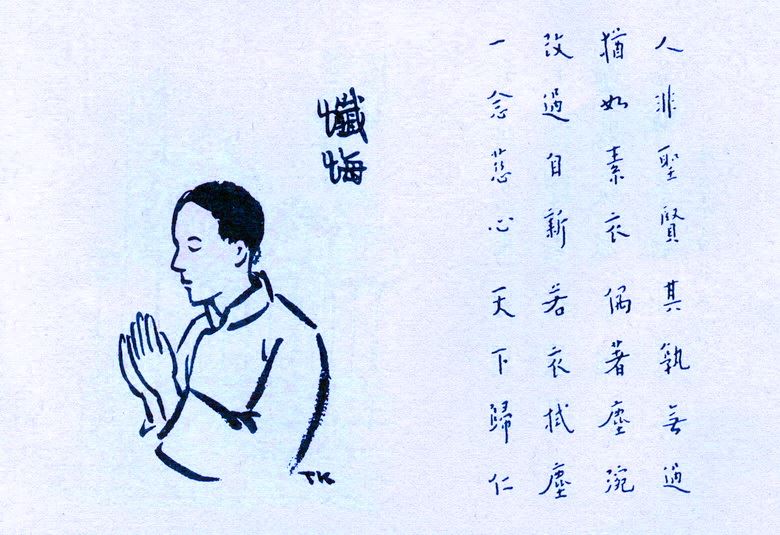 人非聖賢其孰無過
猶如素衣偶著塵涴
改過自新若衣拭塵
一念慈心天下歸仁
懺悔
TK